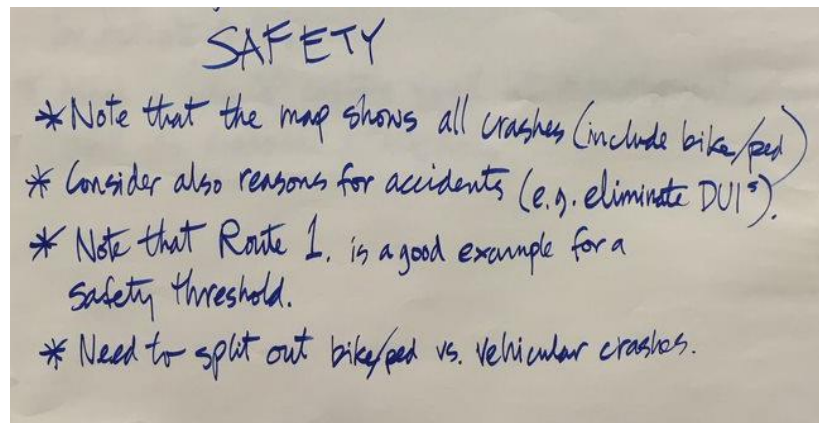 SAFETY
* Note that the map shows all crashes (include bike/ped)
* Consider also reasons for accidents (e.g. eliminate DUIs).
* Note that Route 1. is a good example for a
safety threshold.
* Need to split out bike/ped vs. vehicular crashes.